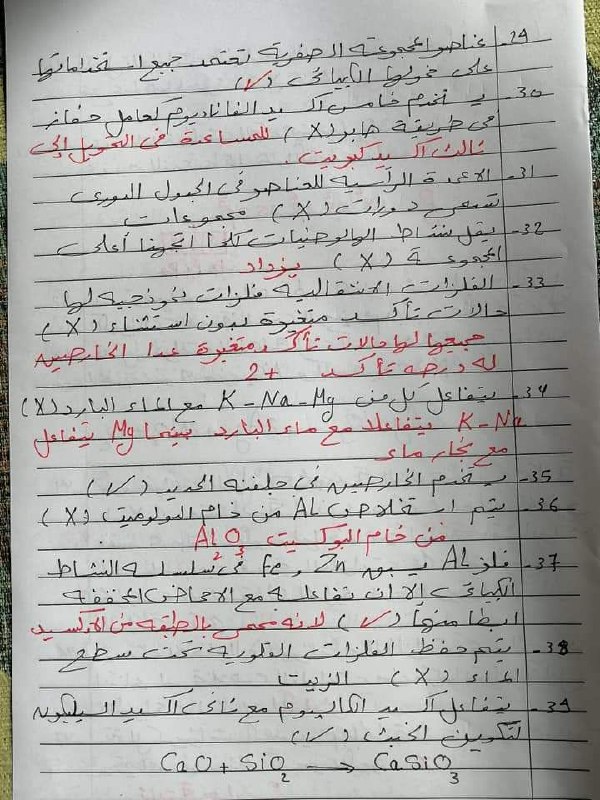 29- عناصر المجموعة الصفرية تعتمد جميع استخداماتها
على خمولها الكيميائي (√)
30- يستخدم خامس اكسيد الفاناديوم كعامل حفاز
في طريقة هابر (X) للمساعدة في التحويل إلى
ثالث اكسيد كبريت.
31- الاعمدة الرأسية للعناصر في الجدول الدوري
تسمى دورات (X) مجموعات
32- يقل نشاط الهالوجينات كلما اتجهنا أعلى
المجموعة (X) يزداد
33- الفلزات الانتقالية فلزات نموذجيه لها
حالات تأكسد متغيرة بدون استثناء (X)
جميعها لها حالات تأكسد متغيرة عدا الخارصين
له درجه تأكسد +2
34- يتفاعل كل من K-Na-Mg مع الماء البارد (X)
K-Na يتفاعلا مع ماء البارد بينما Mg يتفاعل
مع بخار ماء
35- يستخدم الخارصين في جلفنه الحديد (√)
36- يتم استخلاص AL من خام الدولوميت (X)
من خام البوكسيت Al2O3
37- فلز AL يسبق Zn و Fe في سلسله النشاط
الكيميائي إلا ان تفاعله مع الاحماض المخففه
ابطأ منهما (√) لانه محمي بالطبقه من الاكسيد
38- يتم حفظ الفلزات القلوية تحت سطح
الماء (X) الزيت
39- يتفاعل اكسيد الكالسيوم مع ثاني اكسيد السيليكون
لتكوين الخبث (√)
CaO + SiO2 → CaSiO3